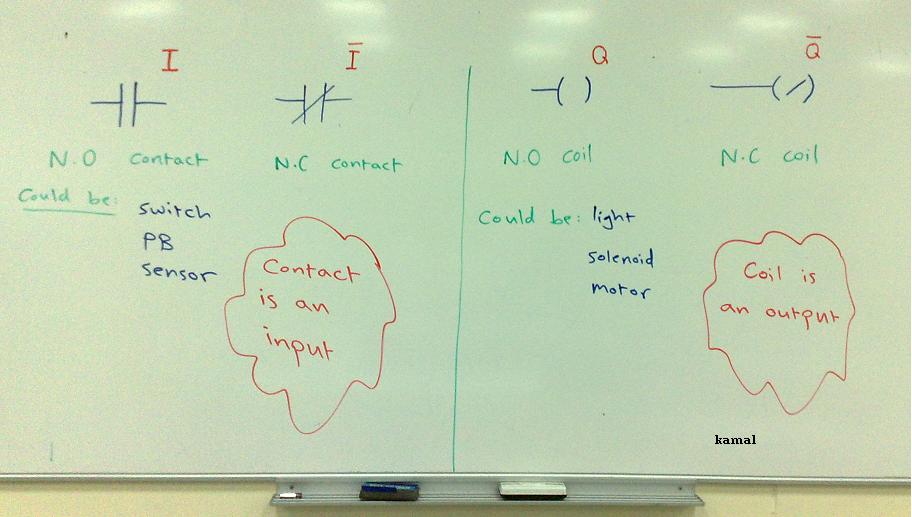 I
Ī
N.O contact
N.C contact
Could be:
switch
PB
sensor
Contact
is an
input
Q
Q̅
N.O coil
N.C coil
Could be: light
solenoid
motor
Coil is
an output
kamal